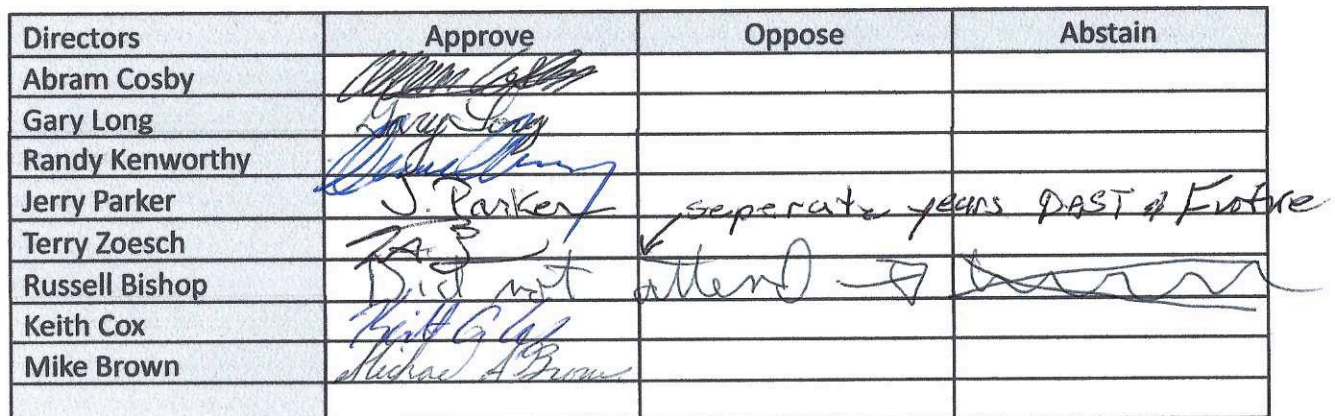 Directors Approve Oppose Abstain
Abram Cosby
Gary Long Gary Long
Randy Kenworthy
Jerry Parker J. Parker seperate years PAST &
Terry Zoesch
Russell Bishop Did not attend
Keith Cox Keith G Cox
Mike Brown Michael A Brown